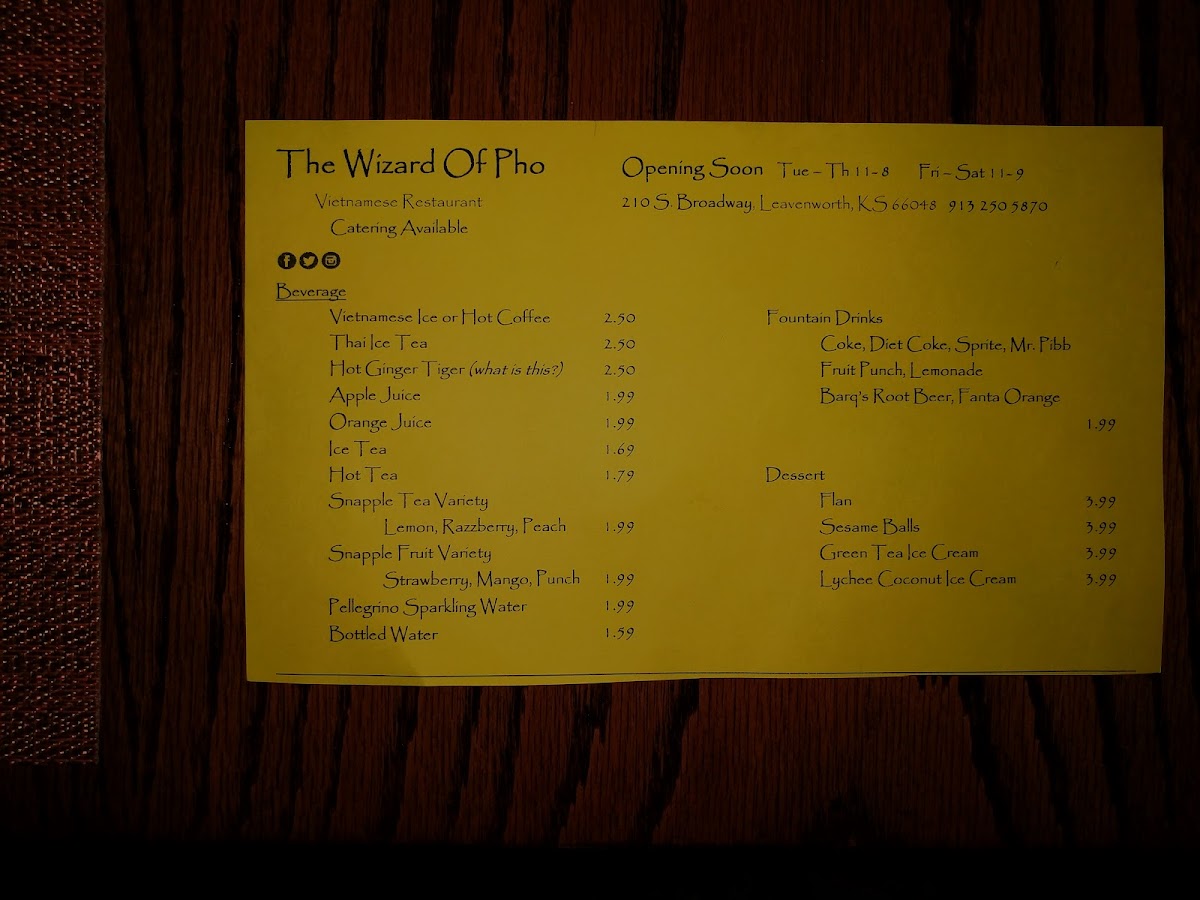 The Wizard Of Pho
Opening Soon Tue – Th 11-8 Fri – Sat 11-9
Vietnamese Restaurant
210 S. Broadway, Leavenworth, KS 66048 913 250 5870
Catering Available
Beverage
Vietnamese Ice or Hot Coffee 2.50
Thai Ice Tea 2.50
Hot Ginger Tiger (what is this?) 2.50
Apple Juice 1.99
Orange Juice 1.99
Ice Tea 1.69
Hot Tea 1.79
Snapple Tea Variety
Lemon, Razzberry, Peach 1.99
Snapple Fruit Variety
Strawberry, Mango, Punch 1.99
Pellegrino Sparkling Water 1.99
Bottled Water 1.59
Fountain Drinks
Coke, Diet Coke, Sprite, Mr. Pibb
Fruit Punch, Lemonade
Barq's Root Beer, Fanta Orange
1.99
Dessert
Flan 3.99
Sesame Balls 3.99
Green Tea Ice Cream 3.99
Lychee Coconut Ice Cream 3.99